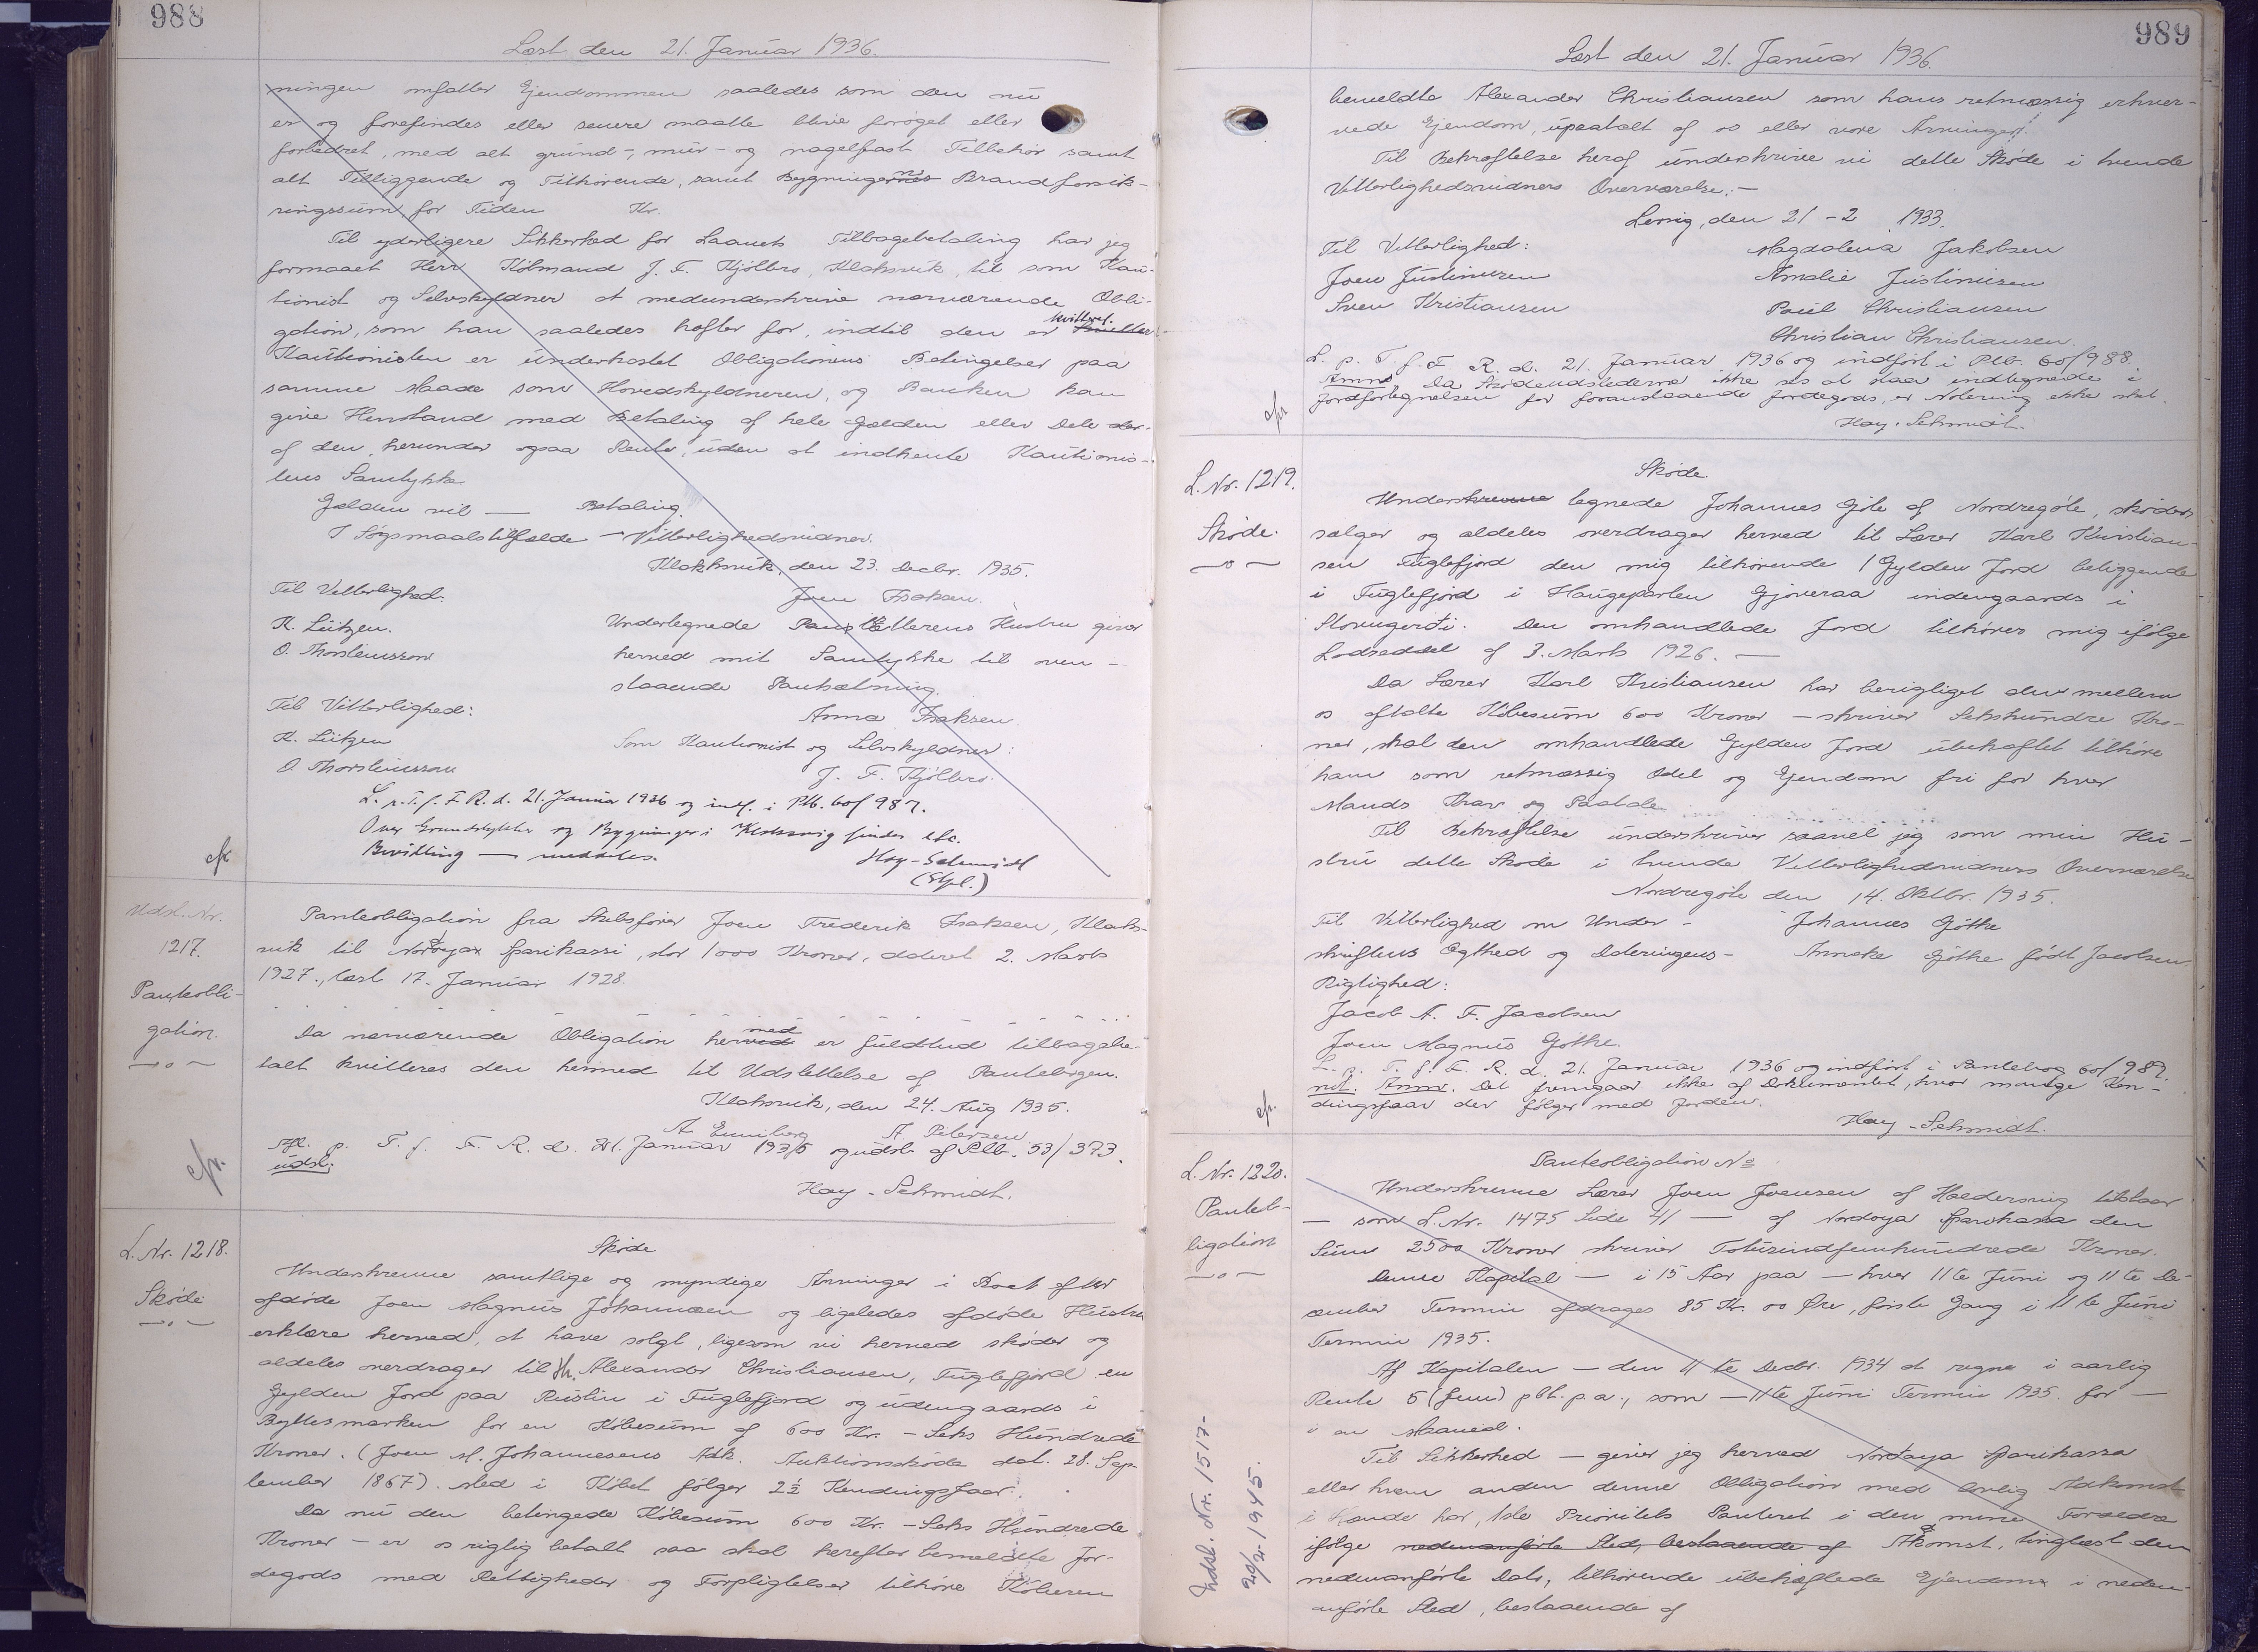 988
Læst den 21. Januar 1936.
ningen omfatter Ejendommen saaledes som den nu
er og forefindes eller senere maatte blive forøget eller
forbedret, med alt grund-, mur- og nagelfast Tilbehør samt
alt Tilliggende og Tilhørende, samt Bygningernes Brandforsik-
ringssum for Tiden Kr.
Til yderligere Sikkerhed for Laanets Tilbagebetaling har jeg
formaaet Herr Købmand J. F. Kjølbro, Klaksvik, til som Kau-
tionist og Selvskyldner at medunderskrive nærværende Obli-
gation, som han saaledes hæfter for, indtil den er kvitteret.
Kautionisten er underkastet Obligationens Betingelser paa
samme Maade som Hovedskyldneren, og Banken kan
give Henstand med Betaling af hele Gælden eller Dele der-
af den, herunder ogsaa Renter, uden at indhente Kautionis-
tens Samtykke
Gælden vil — Betaling.
I Søgsmaalstilfælde — Vitterlighedsvidner.
Klakksvik, den 23. Decbr. 1935.
Til Vitterlighed: Joen Isaksen.
K. Lützen. Undertegnede Pantsætterens Hustru giver
O. Thorsteinsson herved mit Samtykke til oven-
staaende Pantsætning.
Til Vitterlighed: Anna Isaksen.
K. Lützen Som Kautionist og Selvskyldner:
O. Thorsteinsson J. F. Kjølbro.
L. p. T. f. F. R. d. 21. Januar 1936 og indf. i Ptb. 60/987.
Over Grundstykker og Bygninger i Klaksvig findes etc.
Bevilling — meddeles.
Hay-Schmidt
(Stpl.)
cfr.
Udsl. Nr.
1217.
Panteobli-
gation.
—o—
Panteobligation fra Skibsfører Joen Frederik Isaksen, Klaks-
vik til Nordoya Sparikassi, stor 1000 Kroner, dateret 2. Marts
1927., læst 17. Januar 1928.
Da nærværende Obligation hermed er fuldtud tilbagebe-
talt kvitteres den hermed til Udslettelse af Pantebogen.
Klaksvik, den 24. Aug 1935.
A. Petersen
Afl. p. T. f. F. R. d. 21. Januar 1936 og udsl. af Ptb. 53/373.
udsl.
Hay-Schmidt.
cfr.
L. Nr. 1218.
Skøde
—o—
Skøde
Underskrevne samtlige og myndige Arvinger i Boet efter
afdøde Joen Magnus Johannesen og ligeledes afdøde Hustru
erklære herved, at have solgt, ligesom vi herved skøder og
aldeles overdrager til Hr. Alexander Christiansen, Fuglefjord en
Gylden Jord paa Rustin i Fuglefjord og udengaards i
Byttesmarken for en Købesum af 600 Kr. - Seks Hundrede
Kroner. (Joen M. Johannesens Adk. Auktionsskøde dat. 28. Sep-
tember 1867). Med i Købet følger 2½ Kendingsfaar.
Da nu den betingede Købesum 600 Kr. - Seks Hundrede
Kroner - er os rigtig betalt saa skal herefter bemeldte Jor-
degods med Rettigheder og Forpligtelser tilhøre Køberen
989
Læst den 21. Januar 1936.
bemeldte Alexander Christiansen som hans retmæssig erhver-
vede Ejendom, upaatalt af os eller vore Arvinger.
Til Bekræftelse heraf underskrive vi dette Skøde i tvende
Vitterlighedsvidners Overværelse.—
Lervig, den 21 - 2 1933.
Til Vitterlighed: Magdalena Jakobsen
Joen Justinusen Amalie Justinusen
Sven Kristiansen Poul Christiansen
Christian Christiansen.
L. p. T. f. F. R. d. 21. Januar 1936 og indført i Ptb. 60/988.
Anm. Da Skødeudstederne ikke ses at staa indtegnede i
Jordfortegnelsen for foranstaaende Jordegods, er Notering ikke sket.
Hay-Schmidt.
cfr.
L. Nr. 1219.
Skøde.
—o—
Skøde.
Underskrevne tegnede Johannes Gøte af Nordregøte, skøder,
sælger og aldeles overdrager herved til Lærer Karl Kristian-
sen Fuglefjord den mig tilhørende 1 Gylden Jord beliggende
i Fuglefjord i Haugeparten Gjøveraa indengaards i
Storugerði. Den omhandlede Jord tilhører mig ifølge
Lodseddel af 3. Marts 1926.—
Da Lærer Karl Kristiansen har berigtiget den mellem
os aftalte Købesum 600 Kroner — skriver Sekshundre Kro-
ner, skal den omhandlede Gylden Jord ubehæftet tilhøre
ham som retmæssig Odel og Ejendom fri for hver
Mands Krav og Paatale
Til Bekræftelse underskriver saavel jeg som min Hu-
stru dette Skøde i tvende Vitterlighedsvidners Overværelse
Nordregøte den 14. Oktbr. 1935.
Til Vitterlighed om Under- Johannes Gøthe
skriftens Ægthed og Dateringens- Anneke Gøthe født Jacobsen.
Rigtighed:
Jacob A. F. Jacobsen
Joen Magnus Gøthe.
L. p. T. f. F. R. d. 21. Januar 1936 og indført i Pantebog 60/989.
mit. Anm. Det fremgaar ikke af Dokumentet, hvor mange Ken-
dingsfaar der følger med Jorden.
Hay-Schmidt.
cfr.
L. Nr. 1220.
Panteob-
ligation
—o—
Panteobligation No
Underskrevne Lærer Joen Joensen af Haldersvig tilstaar
— som L. Nr. 1475 Side 41 — af Nordoya Sparikassa den
Sum 2500 Kroner skriver Totusindfemhundrede Kroner.
Denne Kapital — i 15 Aar paa — hver 11te Juni og 11te De-
cember Termin afdrages 85 Kr. 00 Øre, første Gang i 11te Juni
Termin 1935.
Af Kapitalen — den 11te Decbr. 1934 at regne i aarlig
Rente 5 (fem) pCt. p. a., som — 11te Juni Termin 1935 for —
en Maaned.
Til Sikkerhed — giver jeg herved Nordoya Sparikassa
eller hvem anden denne Obligation med lovlig Adkomst
i Hænde har, 1ste Prioritets Panteret i den, mine Forældre
ifølge nedenanførte Sted, bestaaende af Adkomst, tinglæst den
nedenanførte Dato, tilhørende ubehæftede Ejendom i neden-
anførte Sted, bestaaende af
Udsl. Nr. 1517-
29/12-1945.